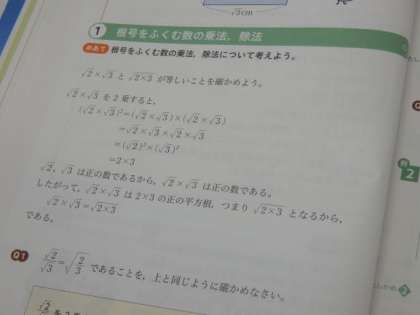 √2cm
1 根号をふくむ数の乗法，除法
めあて 根号をふくむ数の乗法，除法について考えよう。
√2×√3 と √2×3 が等しいことを確かめよう。
√2×√3 を2乗すると，
(√2×√3)²=(√2×√3)×(√2×√3)
=√2×√3×√2×√3
=(√2)²×(√3)²
=2×3
√2，√3 は正の数であるから，√2×√3 は正の数である。
したがって，√2×√3 は 2×3 の正の平方根，つまり √2×3 となるから，
√2×√3=√2×3
である。
Q1 √2/√3=√2/3 であることを，上と同じように確かめなさい。
例
2